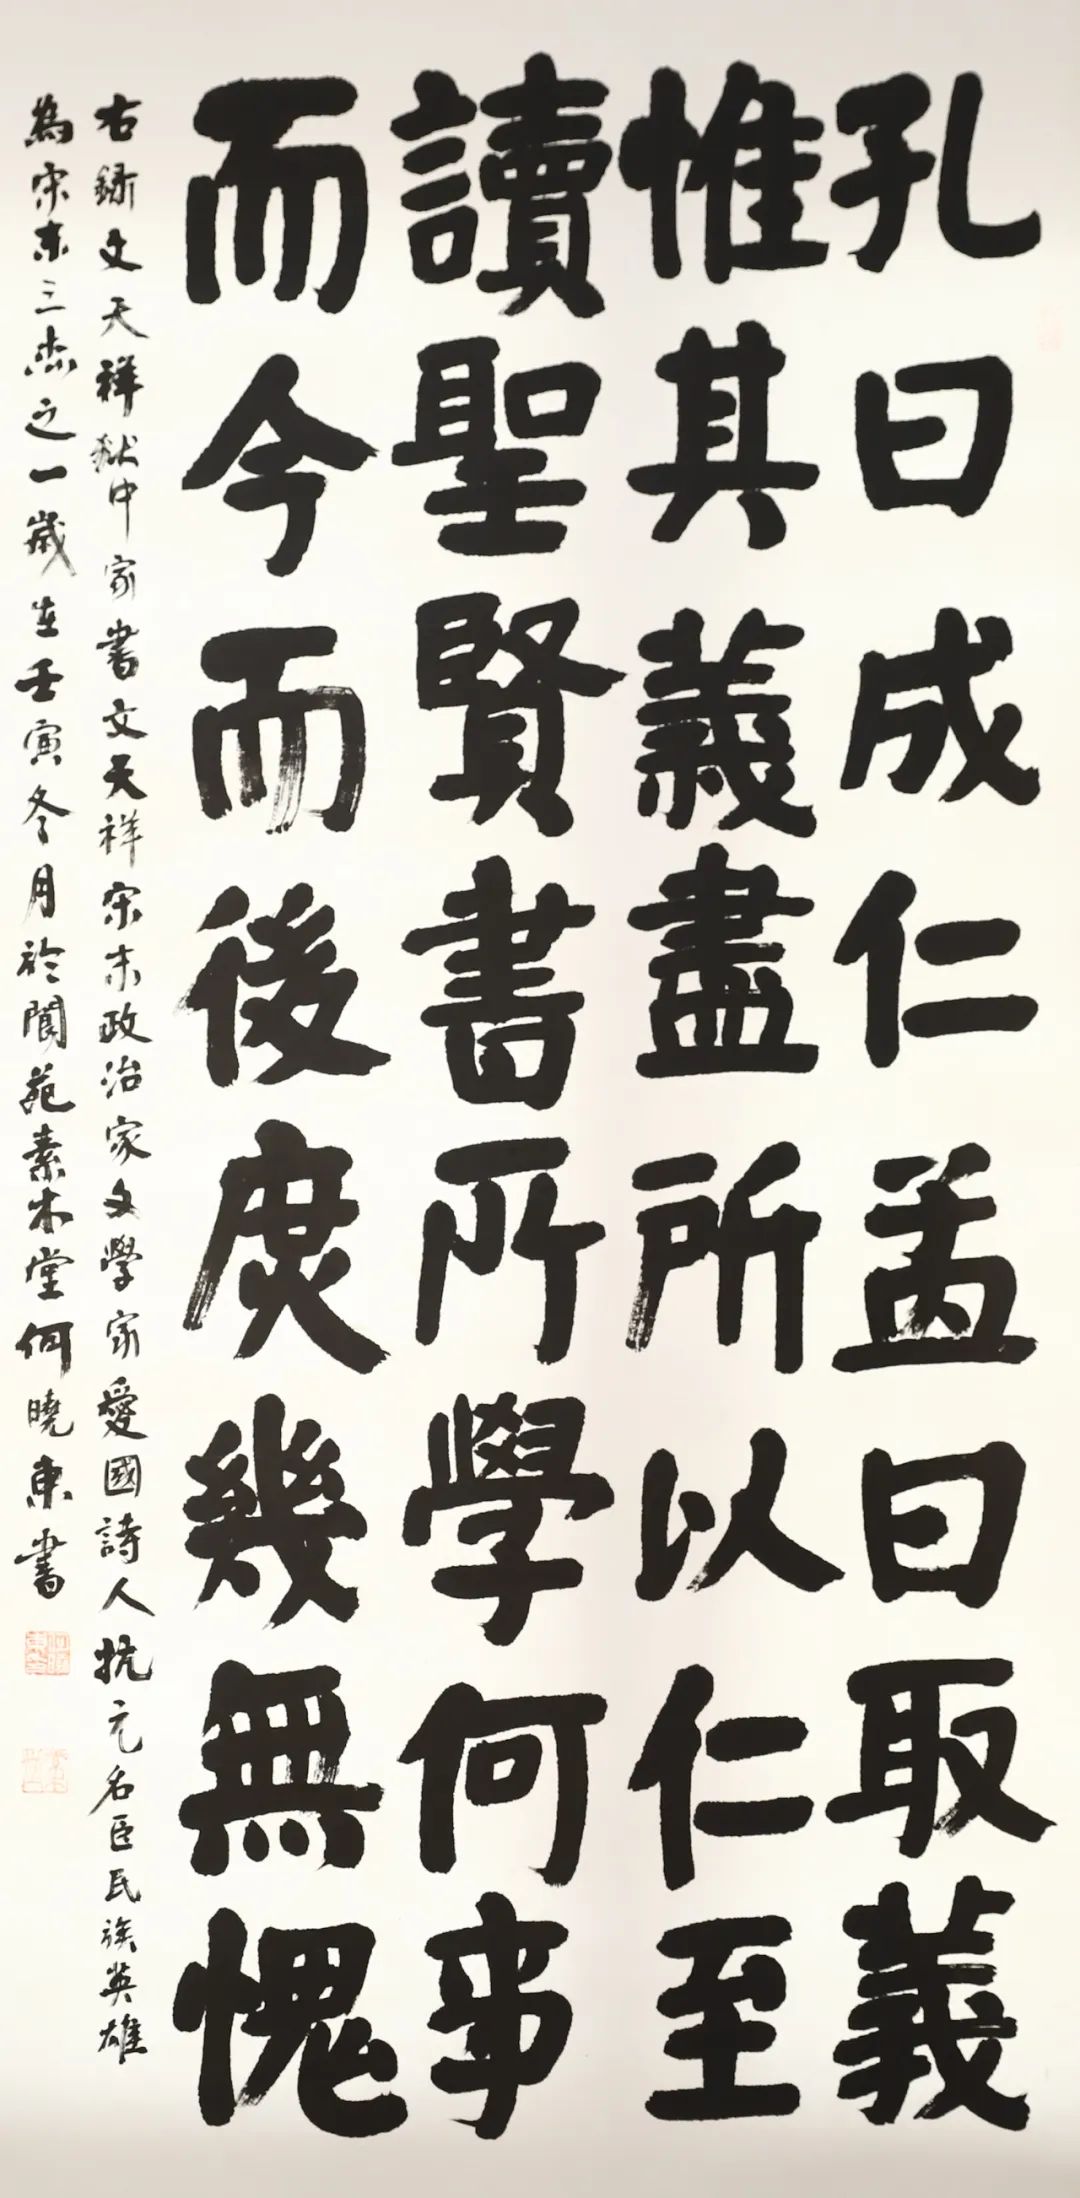 孔曰成仁孟曰取義
惟其義盡所以仁至
讀聖賢書所學何事
而今而後庶幾無愧
右錄文天祥獄中家書文天祥宋末政治家文學家愛國詩人抗元名臣民族英雄
為宋末三杰之一歲在壬寅冬月於閬苑素木堂何曉東書